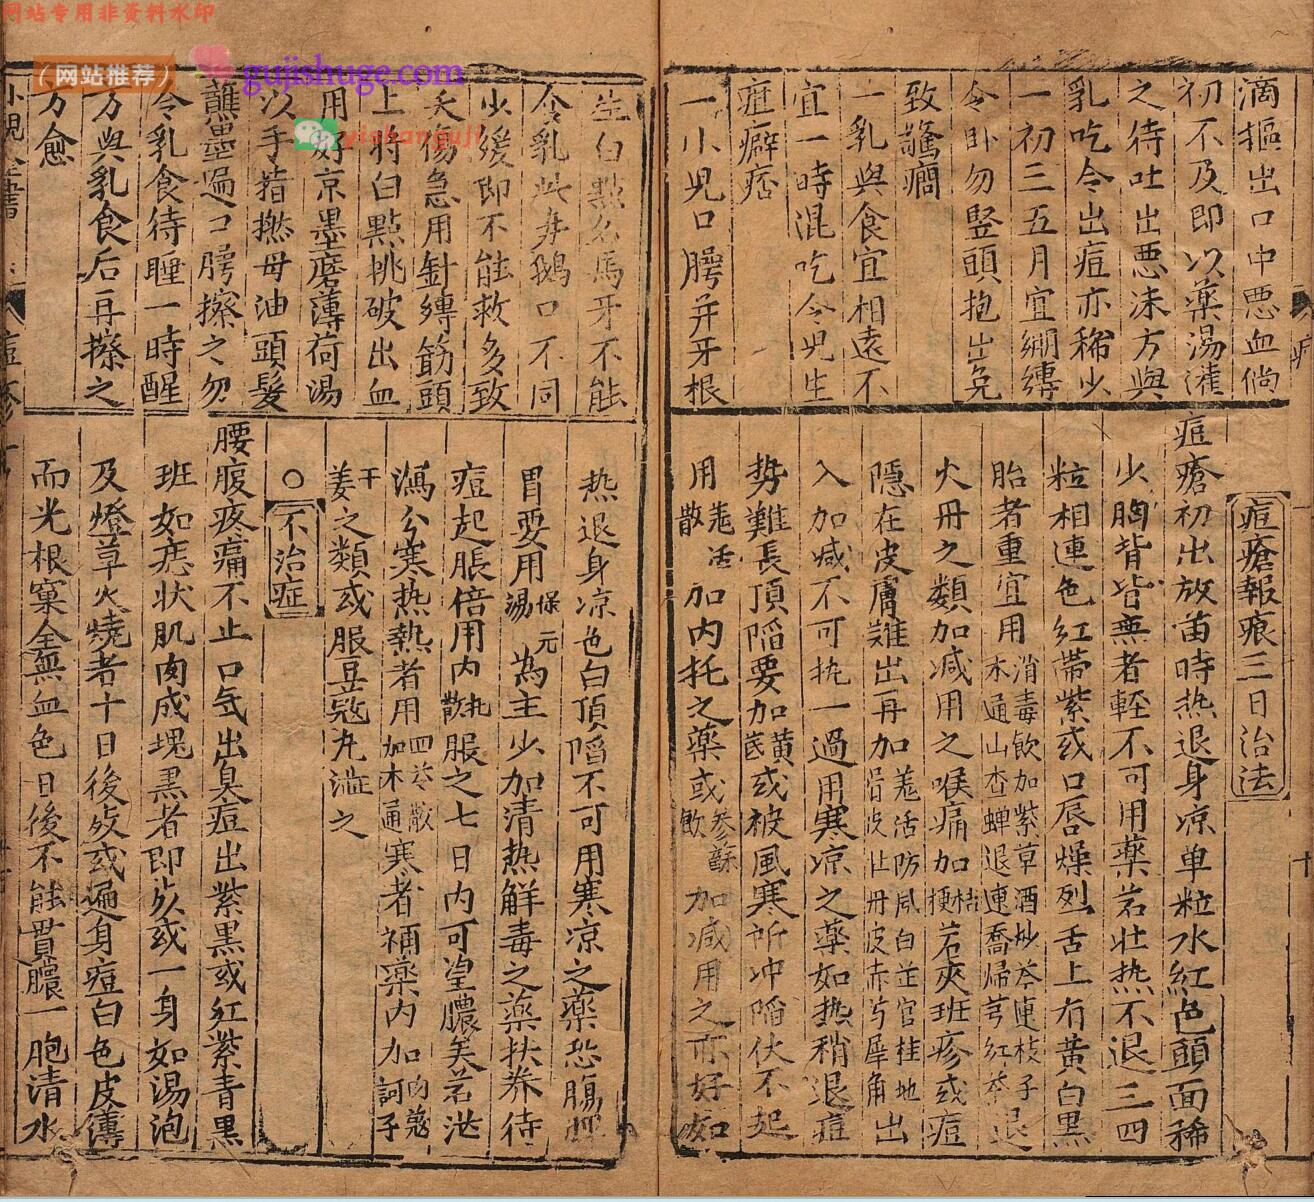 网站专用非资料水印
（网站推荐）
gujishuge.com
yishanguji
滴摳出口中悪血倘
初不及即以薬湯灌
之待吐出悪沫方與
乳吃令出痘亦稀少
一初三五月宜綳縛
令卧勿竪頭抱出免
致驚癎
一乳與食宜相遠不
宜一時混吃令児生
疽癖痞
一小児口腭并牙根
生白點名馬牙不能
令乳此與鵝口不同
少緩即不能救多致
夭傷急用針縳筋頭
上將白點挑破出血
用好京墨磨薄荷湯
以手指撚母油頭髪
蘸墨遍口腭擦之勿
令乳食待睡一時醒
方與乳食后再擦之
方愈
痘瘡報痕三日治法
痘瘡初出放苗時热退身凉单粒水紅色頭面稀
少胸背皆無者輕不可用薬若壮热不退三四
粒相連色紅帯紫或口唇燥烈舌上有黄白黒
胎者重宜用消毒飲加紫草酒炒芩連枝子木通山查蝉退連喬帰芎紅花退
火丹之類加减用之喉痛加桔梗若夾班疹或痘
隱在皮膚難出再加羌活防風白芷官桂地骨皮牡丹皮赤芍犀角出
入加减不可抗一過用寒凉之薬如热稍退痘
勢難長頂陷要加黄芪或被風寒所冲陷伏不起
用羌活散加内托之薬或参蘇飲加减用之亦好如
热退身凉色白頂陷不可用寒凉之薬恐腸
胃要用保元湯為主少加清热解毒之薬扶养待
痘起脹倍用内托散服之七日内可望膿矣若泄
瀉分寒热熱者用四苓散加木通寒者補薬内加肉蔻訶子
干姜之類或服豆蔻丸澁之
○不治症
腰腹疼痛不止口气出臭痘出紫黒或红紫青黒
班如痣状肌肉成塊黒者即死或一身如湯泡
及燈草火燒者十日後死或遍身痘白色皮薄
而光根窠全無血色日後不能貫膿一胞清水